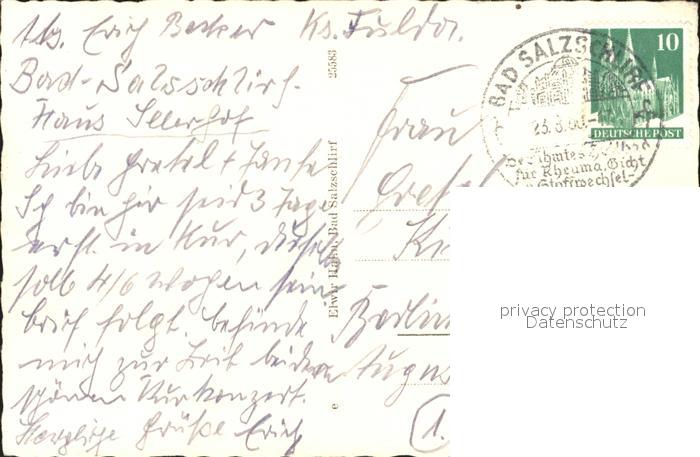 Abs. Erich Becker Kr. Fulda.
Bad-Salzschlirf.
Haus Illerhof
Liebe Gretel + Tante
Ich bin hir seid 3 Tage
erst in Kur, dieselbe
soll 4/6 wochen sein
brief folgt. befinde
mich zur Zeit beidem
schönen Kurkonzert.
Herzliche Grüße Erich
25583
Elwir Hahn, Bad Salzschlirf
e
Frau
Berlin
(1.
BAD SALZSCHLIRF
Berühmtes Heilbad
für Rheuma, Gicht
Stoffwechsel-
10
DEUTSCHE POST
privacy protection
Datenschutz